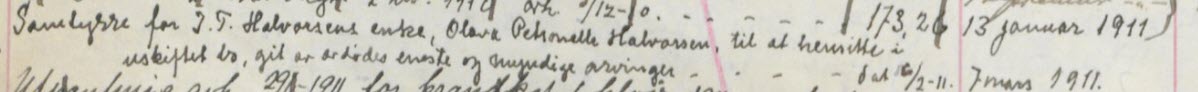 Samtykke for J. T. Halvorsens enke, Olava Petronelle Halvorsen, til at hensitte i 173,26 13 januar 1911
uskiftet bo, git av avdødes eneste og myndige arvinger - - - - dat 16/2-11. 7 mars 1911.